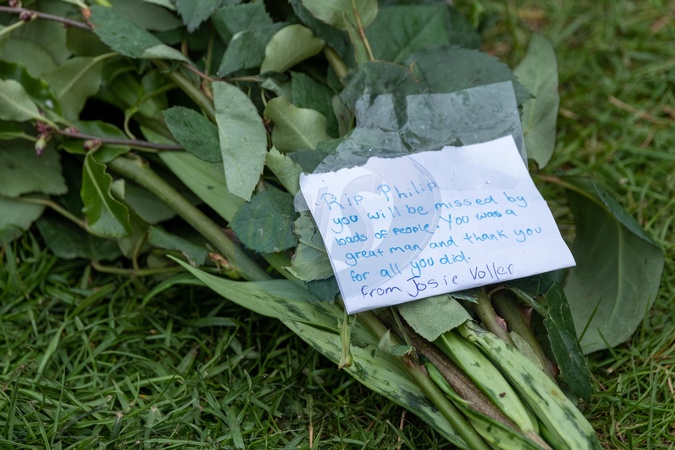 RiP Philip
you will be missed by
loads of people. You was a
great man and thank you
for all you did.
from Josie Voller